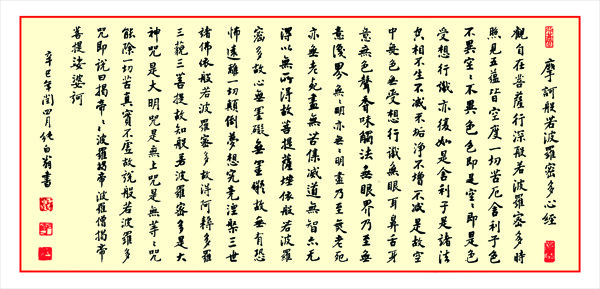 摩訶般若波羅蜜多心經
觀自在菩薩行深般若波羅蜜多時
照見五蘊皆空度一切苦厄舍利子色
不異空〻不異色色即是空〻即是色
受想行識亦復如是舍利子是諸法
空相不生不滅不垢淨不增不減是故空
中無色無受想行識無眼耳鼻舌身
意無色聲香味觸法無眼界乃至無
意識界無〻明亦無〻明盡乃至無老死
亦無老死盡無苦集滅道無智亦无
得以無所得故菩提薩埵依般若波羅
蜜多故心無罣礙無罣礙故無有恐
怖遠離一切顛倒夢想究竟涅槃三世
諸佛依般若波羅蜜多故得阿耨多羅
三藐三菩提故知般若波羅蜜多是大
神咒是大明咒是無上咒是無等〻咒
能除一切苦真實不虛故說般若波羅多
咒即說曰揭帝〻〻波羅揭帝波羅僧揭帝
菩提娑婆訶
辛巳年閏四月純白翁書